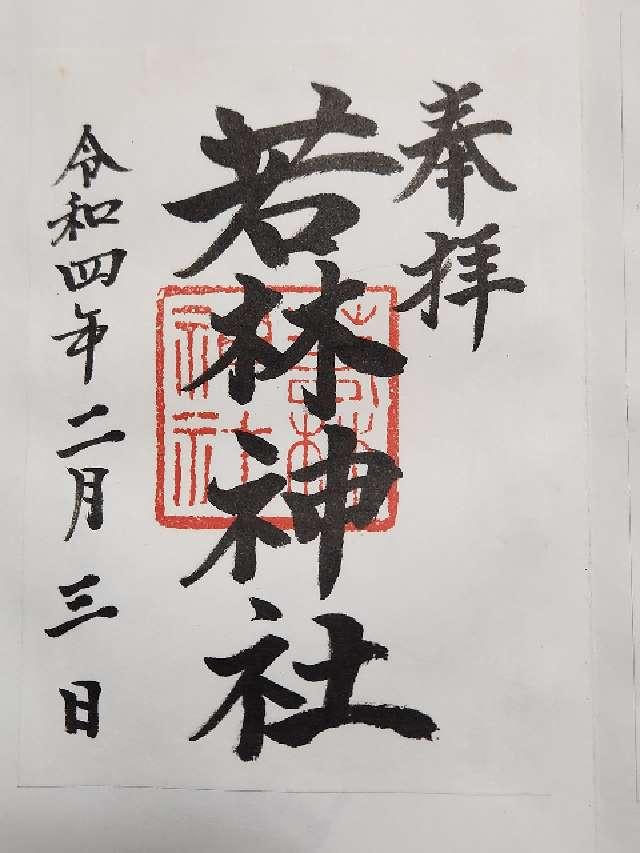 奉拝
若林神社
若林神社
令和四年二月三日